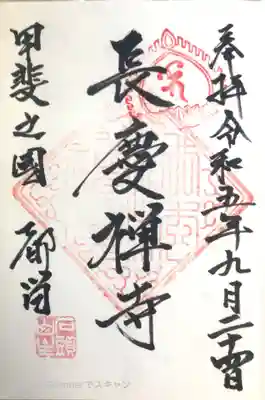 奉拝 令和五年九月二十四日
長慶禅寺
甲斐之國 都留
でスキャン